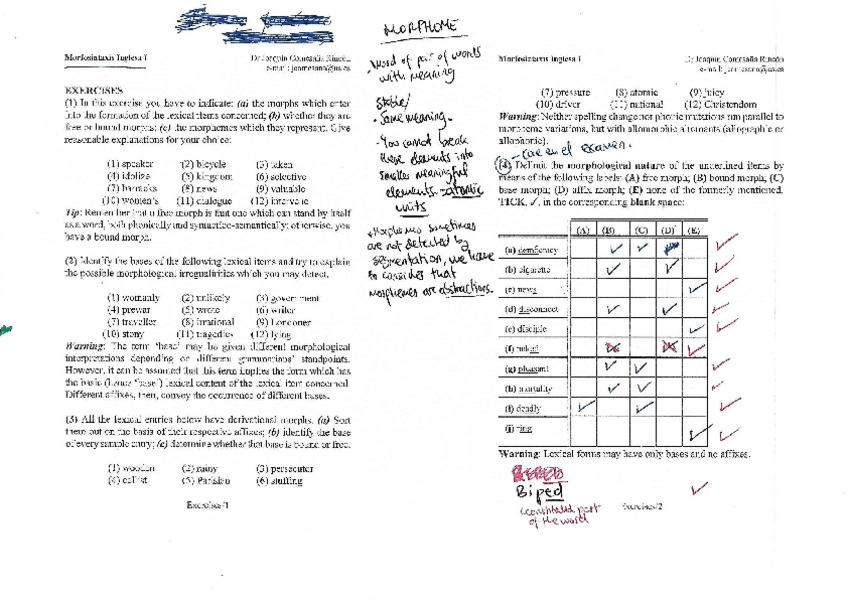 Morfosintaxis Inglesa I
Dr Joaquín Comesaña Rincón
e-mail: jcomesana@us.es
EXERCISES
(1) In this exercise you have to indicate: (a) the morphs which enter
into the formation of the lexical items concerned; (b) whether they are
free or bound morphs; (c) the morphemes which they represent. Give
reasonable explanations for your choice:
(1) speaker (2) bicycle (3) taken
(4) idolize (5) kingdom (6) selective
(7) barracks (8) news (9) valuable
(10) women's (11) dialogue (12) intervene
Tip: Remember that a free morph is that one which can stand by itself
as a word, both phonically and syntactico-semantically; otherwise, you
have a bound morph.
(2) Identify the bases of the following lexical items and try to explain
the possible morphological irregularities which you may detect.
(1) womanly (2) unlikely (3) government
(4) prewar (5) wrote (6) writer
(7) traveller (8) irrational (9) Londoner
(10) stony (11) tragedies (12) lying
Warning: The term 'base' may be given different morphological
interpretations depending on different grammarians' standpoints.
However, it can be assumed that this term implies the form which has
the basic (hence 'base') lexical content of the lexical item concerned.
Different affixes, then, convey the occurrence of different bases.
(3) All the lexical entries below have derivational morphs. (a) Sort
them out on the basis of their respective affixes; (b) identify the base
of every sample entry; (c) determine whether that base is bound or free.
(1) wooden (2) rainy (3) persecutor
(4) cellist (5) Parisian (6) stuffing
Exercises/1
MORPHOME
- Word of pair of words
with meaning
Stable/
· Same meaning.
- You cannot break
these elements into
smaller meaningful
elements = atomic
units
• Morphemes sometimes
are not detected by
segmentation, we have
to consider that
morphemes are abstractions.
Morfosintaxis Inglesa I
Dr Joaquín Comesaña Rincón
e-mail: jcomesana@us.es
(7) pressure (8) atomic (9) juicy
(10) driver (11) national (12) Christendom
Warning: Neither spelling change nor phonic mutations run parallel to
morpheme variations, but with allomorphic alternants (allographic or
allophonic).
- Cae en el examen.
(4) Delimit the morphological nature of the underlined items by
means of the following labels: (A) free morph; (B) bound morph; (C)
base morph; (D) affix morph; (E) none of the formerly mentioned.
TICK, ✓, in the corresponding blank space:
(A) (B) (C) (D) (E)
(a) democracy
(b) cigarette
(c) news
(d) disconnect
(e) disciple
(f) naked
(g) pleasant
(h) mortality
(i) deadly
(j) ring
Warning: Lexical forms may have only bases and no affixes.
Biped
(constituted part
of the word
Exercises/2